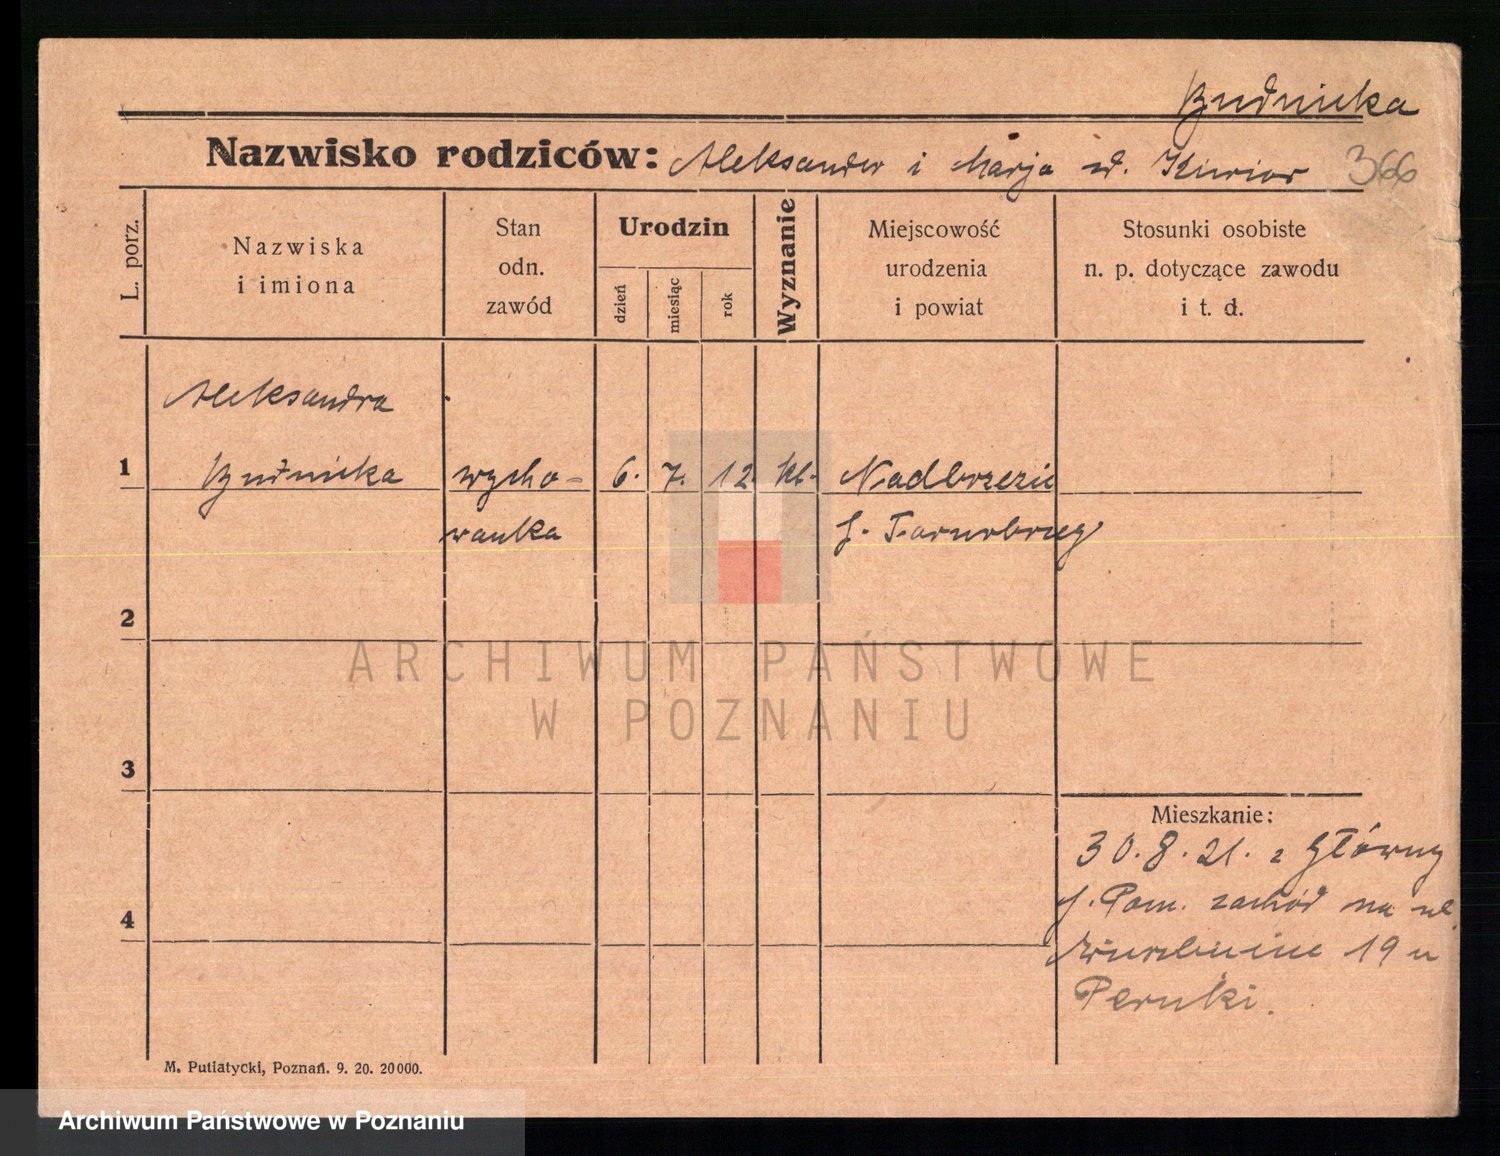 Budnicka
Nazwisko rodziców: Aleksander i Marja zd. Kiwior 366
L. porz.
Nazwiska
i imiona
Stan
odn.
zawód
Urodzin
dzień
miesiąc
rok
Wyznanie
Miejscowość
urodzenia
i powiat
Stosunki osobiste
n. p. dotyczące zawodu
i t. d.
Aleksandra
1 Budnicka wycho- 6. 7. 12. kt. Nadbrzezie
wanka p. Tarnobrzeg
2
ARCHIWUM PAŃSTWOWE
W POZNANIU
3
Mieszkanie:
30.8.21. z Główny
p. Pozn. zachód na ul.
19 u
Peruki.
4
M. Putiatycki, Poznań. 9. 20. 20000.
Archiwum Państwowe w Poznaniu